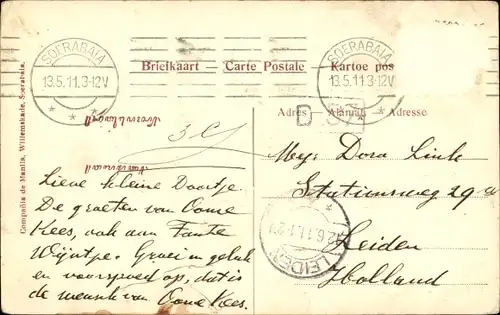 SOERABAIA
13.5.11.3-12V
SOERABAIA
13.5.11.3-12V
Briefkaart Carte Postale Kartoe pos
Adres — Alamat — Adresse
Compañia de Manila, Willemskade, Soerabaia.
D 37
3 C
Mej: Dora Link
Stationsweg 29a
Leiden
Holland
LEIDEN
Lieve kleine Doortje
De groeten van Oome
Kees, ook aan Tante
Wijntje. Groei in geluk
en voorspoed op, dat is
de wensch van Oome Kees.